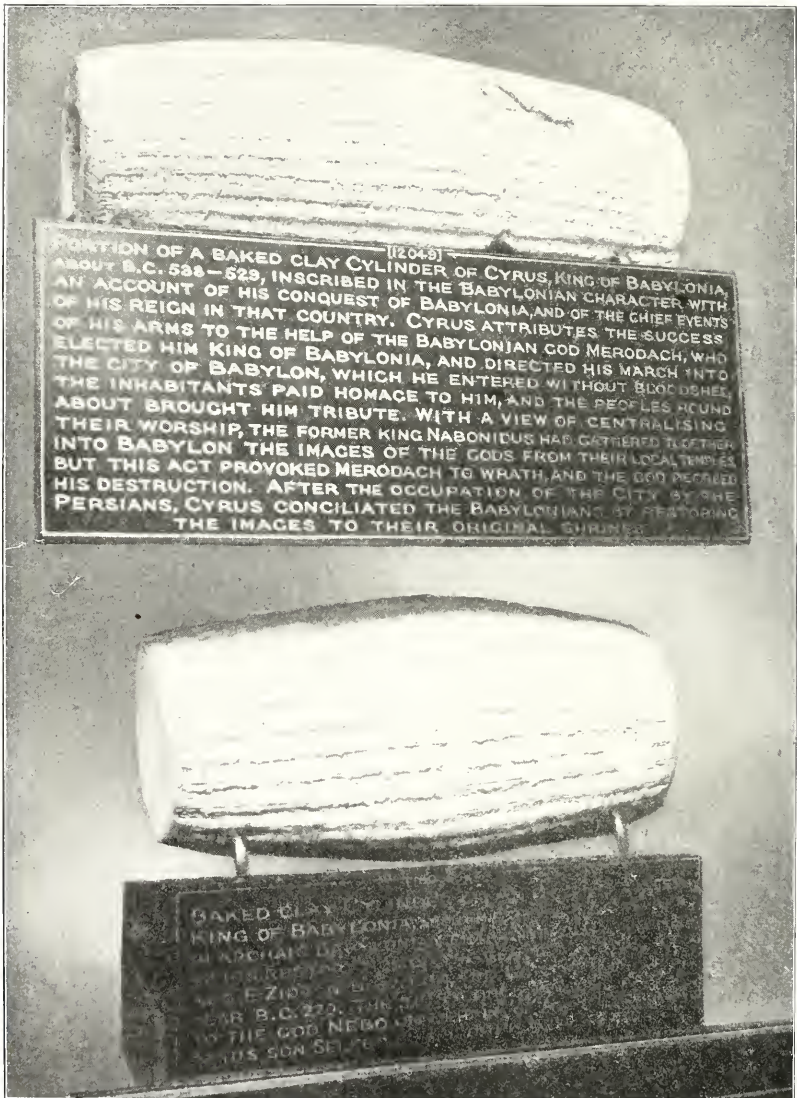 [12049]
PORTION OF A BAKED CLAY CYLINDER OF CYRUS, KING OF BABYLONIA,
ABOUT B.C. 538–529, INSCRIBED IN THE BABYLONIAN CHARACTER WITH
AN ACCOUNT OF HIS CONQUEST OF BABYLONIA, AND OF THE CHIEF EVENTS
OF HIS REIGN IN THAT COUNTRY. CYRUS ATTRIBUTES THE SUCCESS
OF HIS ARMS TO THE HELP OF THE BABYLONIAN GOD MERODACH, WHO
ELECTED HIM KING OF BABYLONIA, AND DIRECTED HIS MARCH INTO
THE CITY OF BABYLON, WHICH HE ENTERED WITHOUT BLOODSHED,
THE INHABITANTS PAID HOMAGE TO HIM, AND THE PEOPLES ROUND
ABOUT BROUGHT HIM TRIBUTE. WITH A VIEW OF CENTRALISING
THEIR WORSHIP, THE FORMER KING NABONIDUS HAD GATHERED TOGETHER
INTO BABYLON THE IMAGES OF THE GODS FROM THEIR LOCAL TEMPLES
BUT THIS ACT PROVOKED MERODACH TO WRATH, AND THE GOD DECREED
HIS DESTRUCTION. AFTER THE OCCUPATION OF THE CITY BY THE
PERSIANS, CYRUS CONCILIATED THE BABYLONIANS BY RESTORING
THE IMAGES TO THEIR ORIGINAL SHRINES
BAKED CLAY
KING OF BABYLONIA
B.C. 270. THE
TO THE GOD NEBO
SON